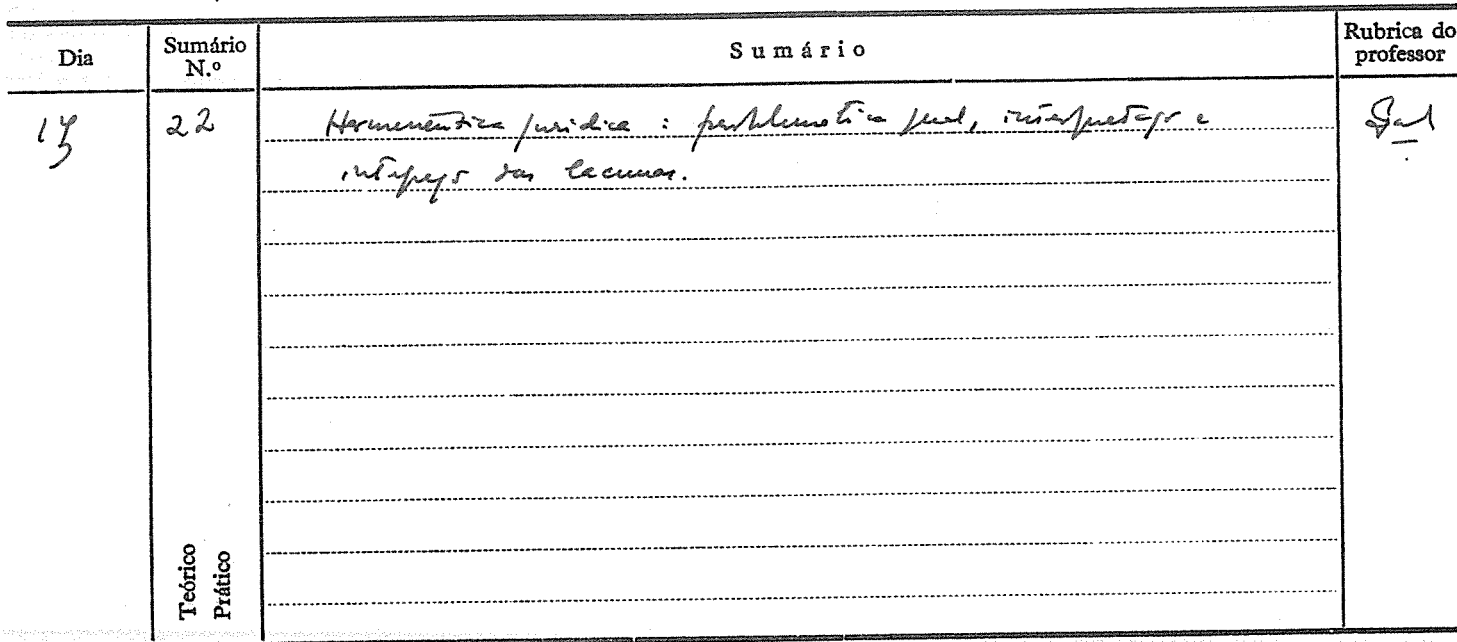 Dia
Sumário N.º
Sumário
Rubrica do professor
22
Hermenêutica jurídica : problemática geral, interpretação e
integração das lacunas.
Teórico
Prático